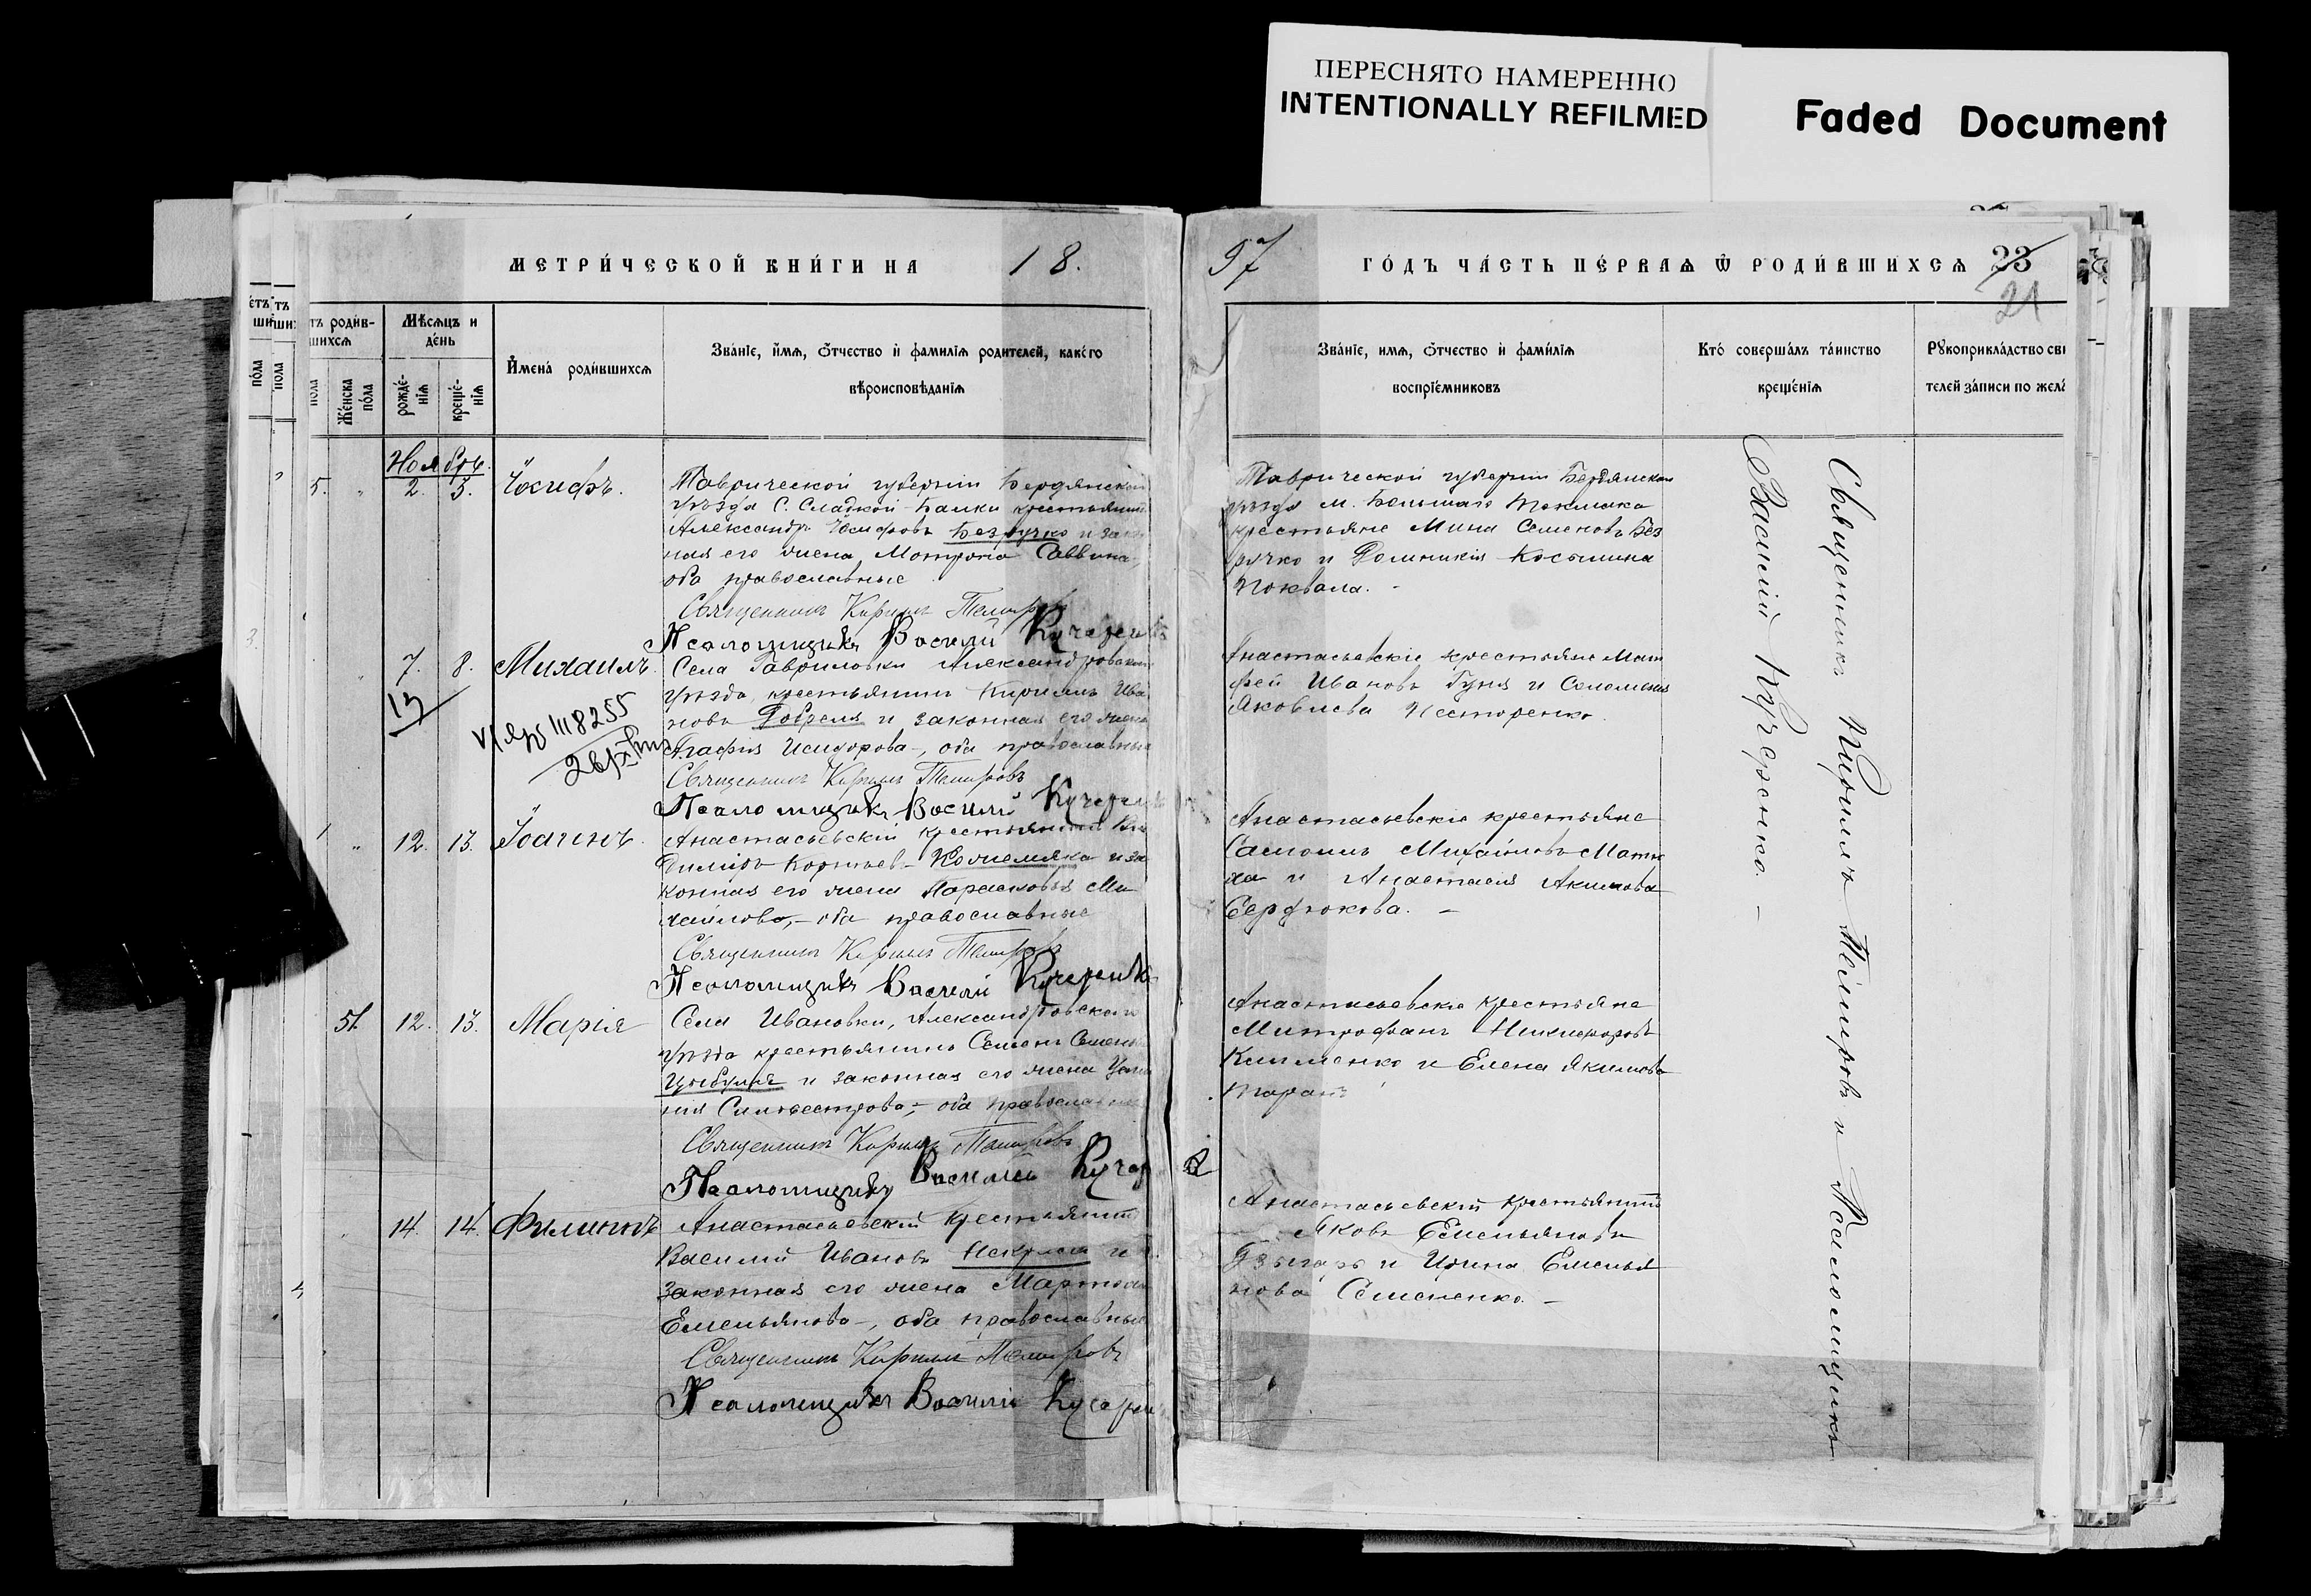 ПЕРЕСНЯТО НАМЕРЕННО
INTENTIONALLY REFILMED
Faded Document
МЕТРИ́ЧЕСКОЙ КНИ́ГИ НА 18.
97 ГО́ДЪ ЧА́СТЬ ПЕ́РВАѦ Ѿ РОДИ́ВШИХСѦ 23
21
тъ роди́в-
шихсѧ
Мѣ́сѧцъ и
де́нь
Имена́ роди́вшихсѧ
Зва́нїе, и́мѧ, ѻ́тчество и҆ фами́лїѧ роди́телей, како́го
вѣроисповѣ́данїѧ
пола
Же́нска
по́ла
рожде́-
нїѧ
креще́-
нїѧ
Зва́нїе, имѧ, ѻ́тчество и҆ фами́лїѧ
воспрїе́мниковъ
Кто́ соверша́лъ та́инство
креще́нїѧ
Рꙋкоприкла́дство сви
телей за́писи по жела́
Ноябрь.
5. 2. 3. Іосифъ.
Таврической губерніи Бердянской
уѣзда С. Сладкой-Балки крестьянинъ
Александръ Іосифовъ Безручко и зако
ная его жена Матрона Саввина,
оба православные
Священникъ Кириллъ
Псаломщикъ Василій Кучеренко
Таврической губерніи Бердянскаго
уѣзда м. Большаго Токмака
крестьяне Мина Семеновъ Без
ручко и Домникія Косьмина
Похвала.
7. 8. Михаилъ.
13
Села Гавриловки Александровскаго
уѣзда, крестьянинъ Кириллъ Ива
новъ и законная его жена
Агафія Исидорова, оба православные
Священникъ Кириллъ
Псаломщикъ Василій Кучеренко
Анастасьевскіе крестьяне Мат
фей Ивановъ и Соломонія
Яковлева Нестеренко.
12. 13. Іоаннъ.
Анастасьевскій крестьянинъ Вла
диміръ Корнѣев Кожемяка и за
конная его жена Парасковья Ми
хайлова, оба православные
Священникъ Кириллъ
Псаломщикъ Василій Кучеренко
Анастасьевскіе крестьяне
Самоилъ Михайловъ Матю
ха и Анастасія Акимова
Сердюкова.
51. 12. 13. Марія
Села Ивановки, Александровскаго
уѣзда крестьянинъ Семенъ Семено
Цыбуля и законная его жена
нія Сильвестрова, оба православные
Священникъ Кириллъ
Псаломщикъ Василій Кучер
Анастасьевскіе крестьяне
Митрофанъ Никифоровъ
Клименко и Елена Якимова
Таран
14. 14. Филиппъ
Анастасьевскій крестьянинъ
Василій Ивановъ и
законная его жена Марѳа
Емельянова, оба православные
Священникъ Кириллъ
Псаломщикъ Василій Кучерен
Анастасьевскій крестьянинъ
Яковъ Емельяновъ
и Ирина Емелья
нова Семененко.
Священникъ Кириллъ и Псаломщикъ
Василій Кучеренко.